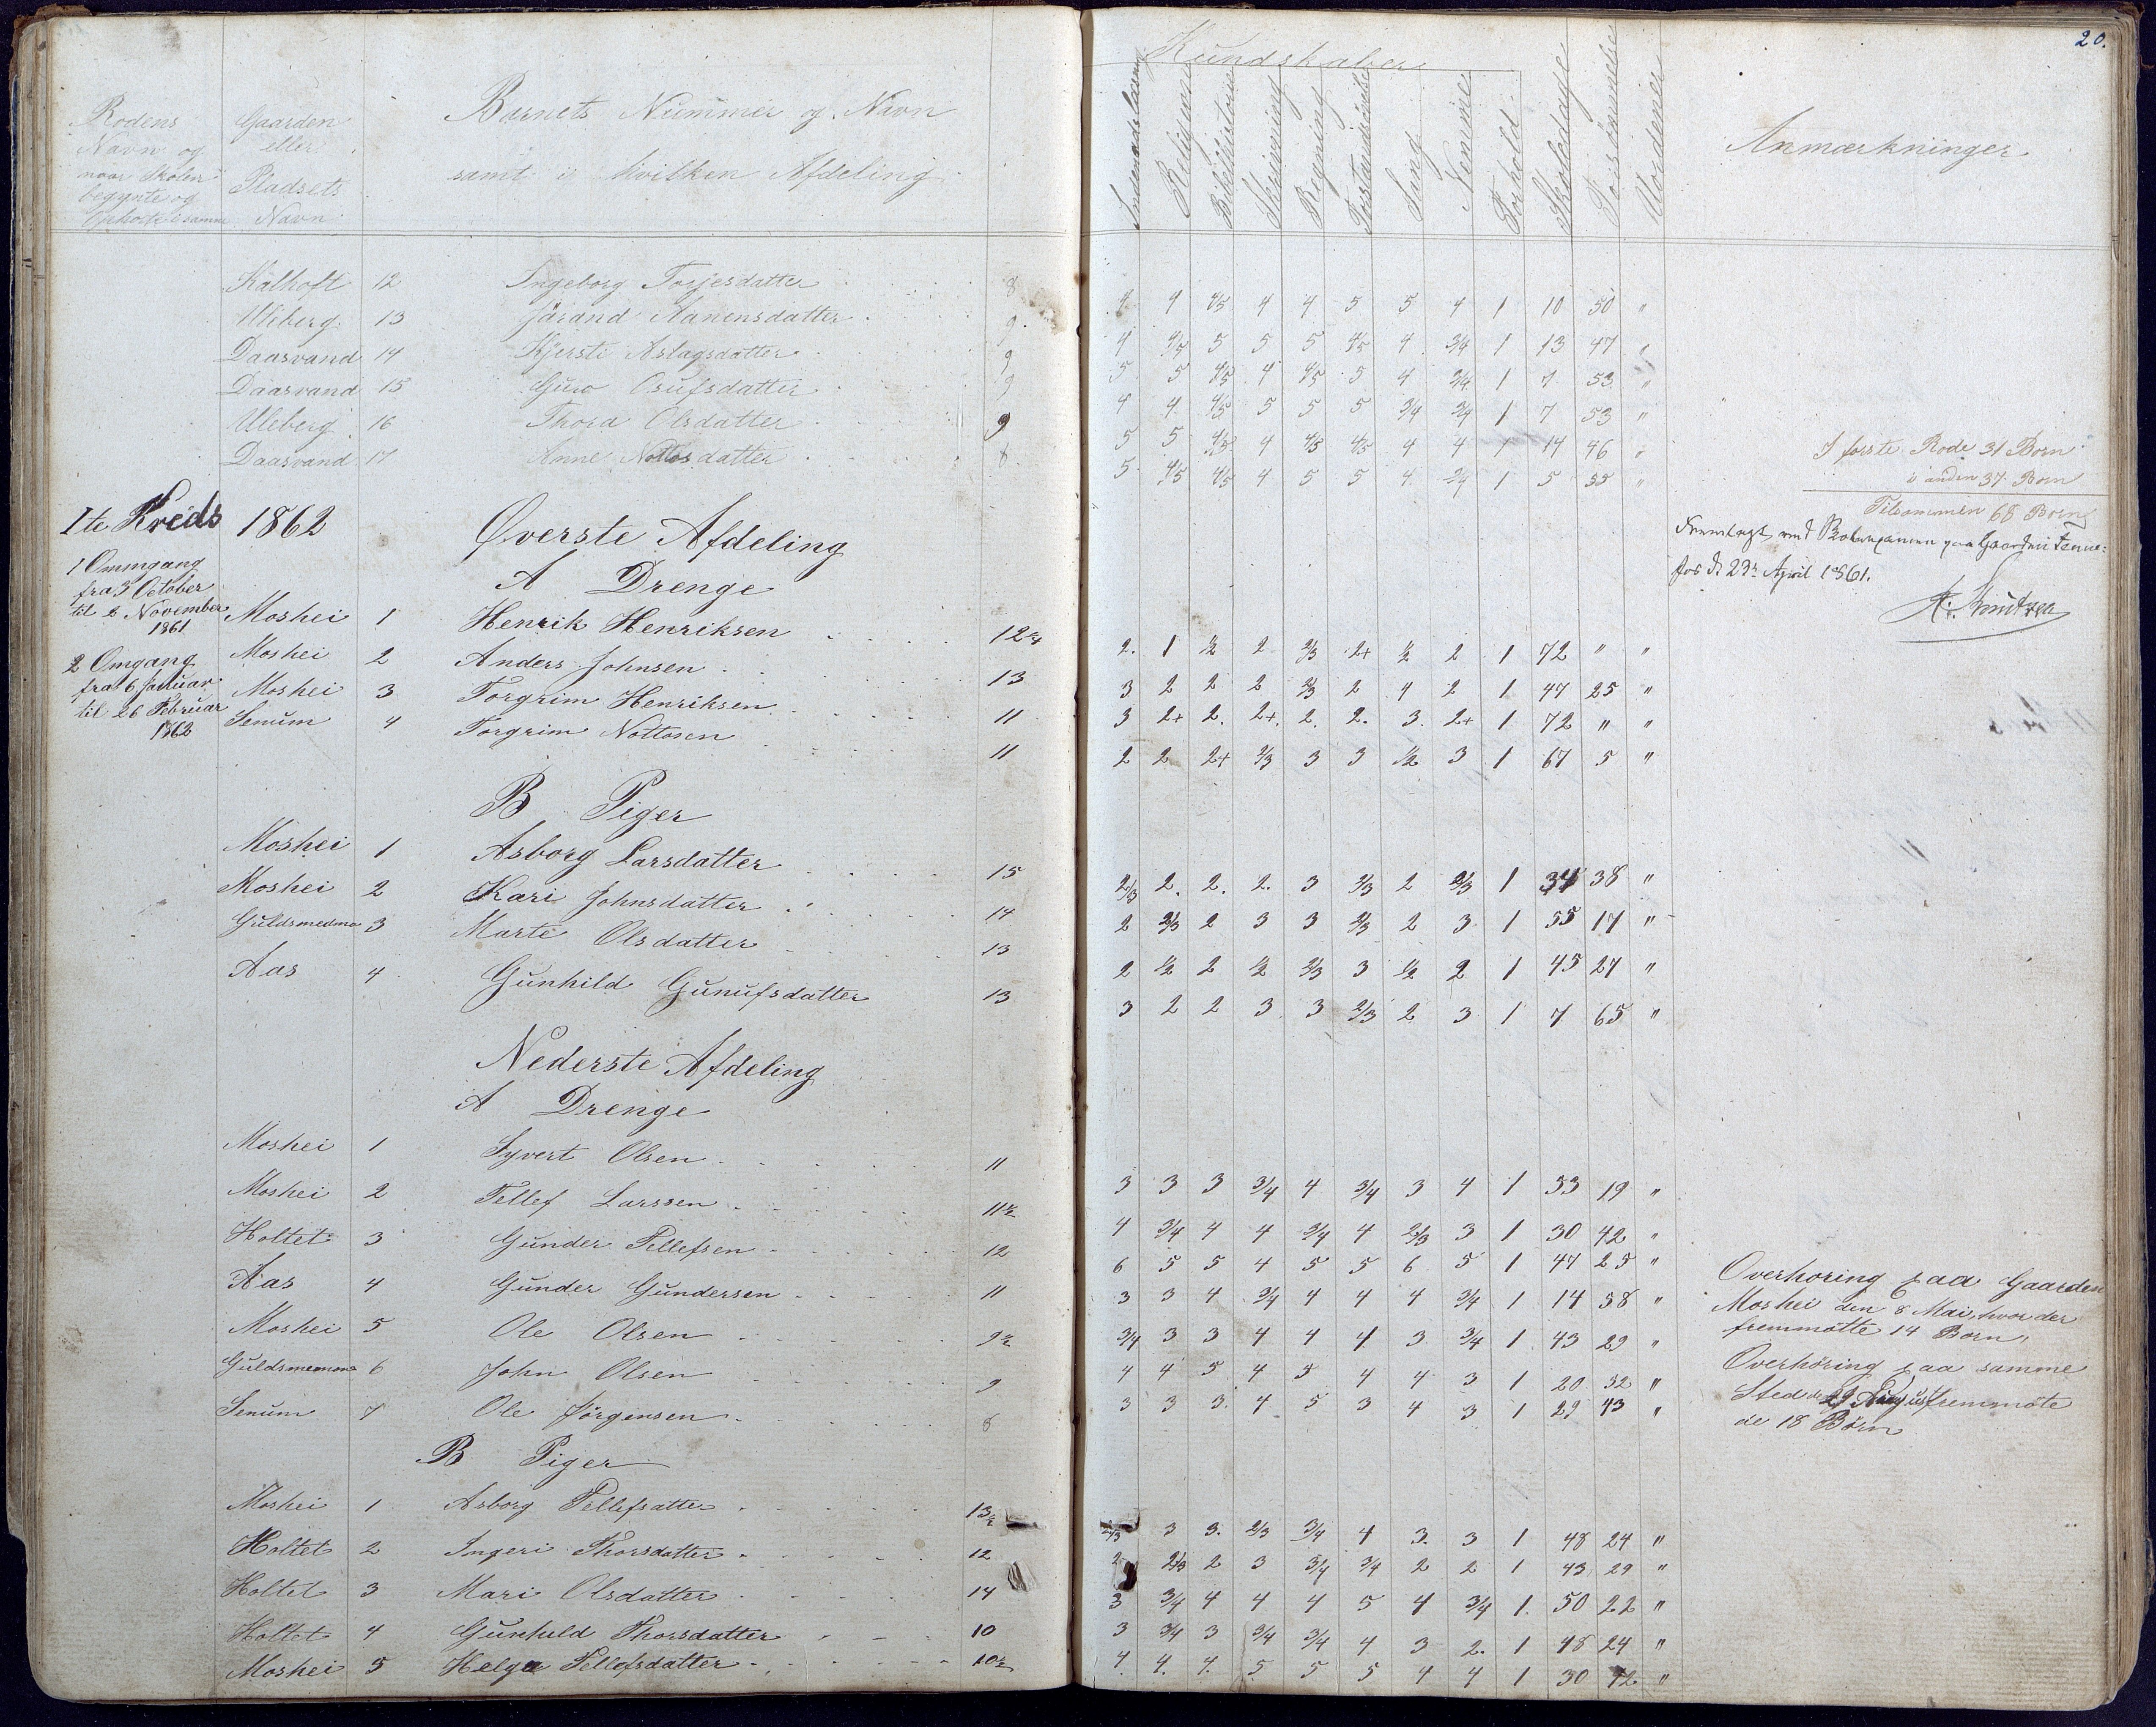 20.
Kundskaber
Rodens Navn og naar Skolen begynte og Ophorte i samme
Gaarden eller Pladsets Navn
Barnets Nummer og Navn
samt i hvilken Afdeling
Indenadslæsning Religion Bibelhistorie Skrivning Regning Forstandsøvelse Sang Nemme Forhold Skoledage Forsømmelse Anmærkninger
Kalhoft 12 Ingeborg Torjesdatter 8 4 4 4/5 4 4 5 5 4 1 10 50 "
Uleberg 13 Jörand Aanensdatter 9 4 4/5 5 5 5 4/5 4 3/4 1 13 47 "
Daasvand 14 Kjersti Aslagsdatter 9 5 5 4/5 4 4/5 5 4 3/4 1 7 53 "
Daasvand 15 Guro Osufsdatter 9 4 4 4/5 5 5 5 3/4 3/4 1 7 53 "
Uleberg 16 Thora Olsdatter 9 5 5 4/5 4 4/5 4/5 4 4 1 14 46 "
Daasvand 17 Anne Nottosdatter 8 5 4/5 4/5 4 5 5 4 3/4 1 5 55 "
I forste Rode 31 Born
i anden 37 Born
Tilsammen 68 Born
Fremlagt ved paa Gaarden
fos d. 23de April 1861.
A. Knutzen
1te Kreds 1862 Øverste Afdeling
A Drenge
1 Ommgang
fra 3 October
til 2 November
1861
2 Omgang
fra 6 Januar
til 26 Februar
1862
Moshei 1 Henrik Henriksen 12 2. 1 1/2 2 2/3 2+ 1/2 2 1 72 " "
Moshei 2 Anders Johnsen 13 3 2 2 2 2/3 2 4 2 1 47 25 "
Moshei 3 Torgrim Henriksen 11 3 2+ 2. 2+. 2. 2. 3. 2+ 1 72 " "
Senum 4 Torgrim Nottosen 11 2 2 2+ 2/3 3 3 1/2 3 1 67 5 "
B Piger
Moshei 1 Asborg Larsdatter 15 2/3 2. 2. 2. 3 2/3 2 2/3 1 34 38 "
Moshei 2 Kari Johnsdatter 14 2 2/3 2 3 3 2/3 2 3 1 55 17 "
Guldsmedmo 3 Marte Olsdatter 13 2 1/2 2 1/2 2/3 3 1/2 2 1 45 27 "
Aas 4 Gunhild Gunufsdatter 13 3 2 2 3 3 2/3 2 3 1 7 65 "
Nederste Afdeling
A Drenge
Moshei 1 Syvert Olsen 11 3 3 3 3/4 4 3/4 3 4 1 53 19 "
Moshei 2 Tellef Larssen 11 1/2 4 3/4 4 4 3/4 4 2/3 3 1 30 42 "
Holtet 3 Gunder Tellefsen 12 6 5 5 4 5 5 6 5 1 47 25 "
Aas 4 Gunder Gundersen 11 3 3 4 3/4 4 4 4 3/4 1 14 58 "
Moshei 5 Ole Olsen 9 1/2 3/4 3 3 4 4 4 3 3/4 1 43 29 "
6 John Olsen 9 4 4 5 4 5 4 4 3 1 20 52 "
Senum 7 Ole Jörgensen 8 3 3 3 4 5 3 4 3 1 29 43 "
Overhoring paa Gaarden
Moshei den 8 Mai, hvor der
fremmötte 14 Born,
Overhöring paa samme
Sted den 29 August fremmöte
de 18 Börn
B Piger
Moshei 1 Asborg Tellefsatter 13 1/2 2/3 3 3. 2/3 3/4 4 3. 3 1 48 24 "
Holtet 2 Ingeri Thorsdatter 12 2 2/3 2 3 3/4 3/4 2 2 1 43 29 "
Holtet 3 Mari Olsdatter 14 3 3/4 4 4 4 5 4 3/4 1. 50 22 "
Holtet 4 Gunhild Thorsdatter 10 3 3/4 3 3/4 3/4 4 3 2. 1 48 24 "
Moshei 5 Helge Tellefsdatter 10 1/2 4. 4. 4. 5 5 5 4 4 1 30 42 "